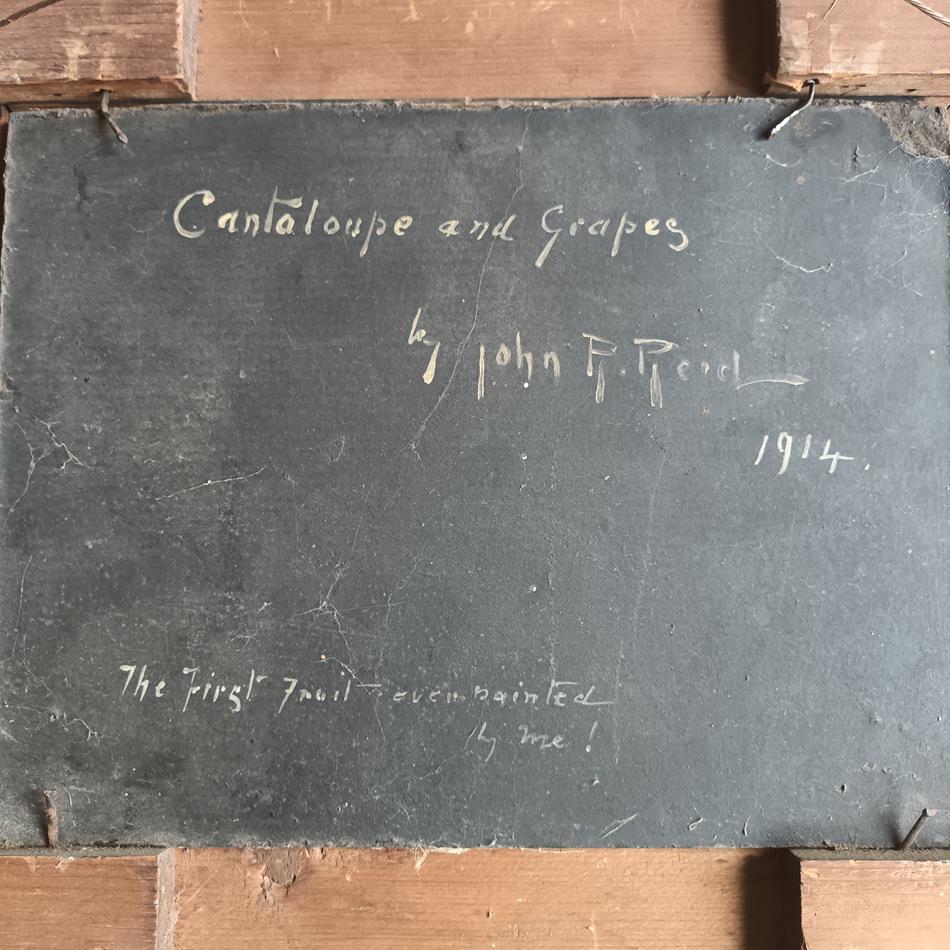 Cantaloupe and Grapes
by John R. Reid
1914.
The First Fruit ever painted
by me!